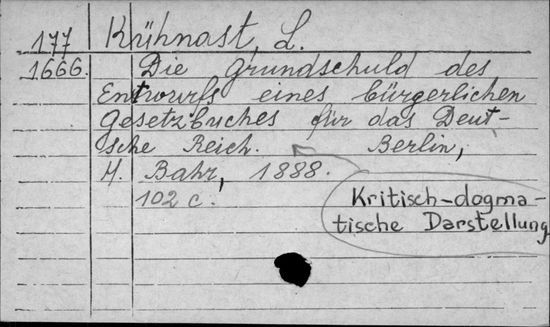 177 Kühnast, L.
1666. Die Grundschuld des
Entwurfs eines bürgerlichen
Gesetzbuches für das Deut-
sche Reich. Berlin,
H. Bahr, 1888.
102 c.
Kritisch-dogma-
tische Darstellung